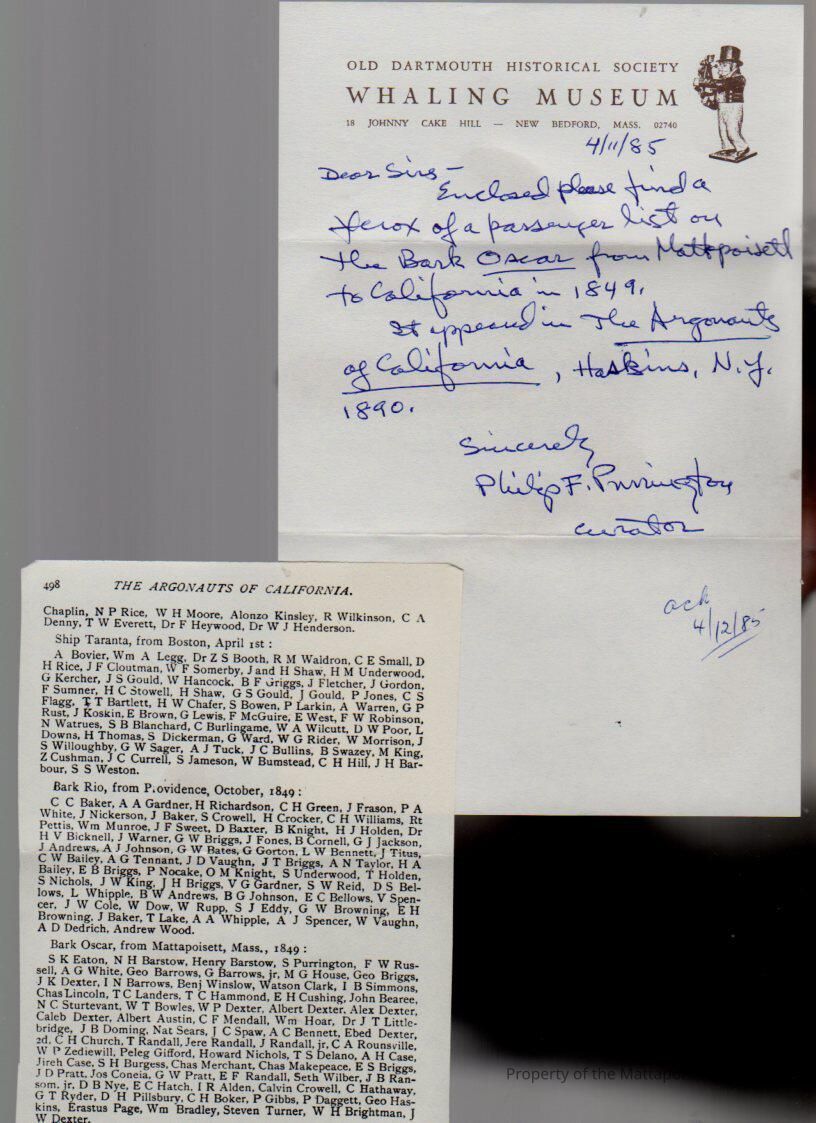 OLD DARTMOUTH HISTORICAL SOCIETY
WHALING MUSEUM
18 JOHNNY CAKE HILL — NEW BEDFORD, MASS. 02740
4/11/85
Dear Sirs –
Enclosed please find a
Xerox of a passenger list on
the Bark Oscar from Mattpoisett
to California in 1849.
It appeared in The Argonauts
of California, Haskins, N.Y.
1890.
Sincerely
Philip F. Purrington
curator
ack
4/12/85
498 THE ARGONAUTS OF CALIFORNIA.
Chaplin, N P Rice, W H Moore, Alonzo Kinsley, R Wilkinson, C A
Denny, T W Everett, Dr F Heywood, Dr W J Henderson.
Ship Taranta, from Boston, April 1st :
A Bovier, Wm A Legg, Dr Z S Booth, R M Waldron, C E Small, D
H Rice, J F Cloutman, W F Somerby, J and H Shaw, H M Underwood,
G Kercher, J S Gould, W Hancock, B F Griggs, J Fletcher, J Gordon,
F Sumner, H C Stowell, H Shaw, G S Gould, J Gould, P Jones, C S
Flagg, T T Bartlett, H W Chafer, S Bowen, P Larkin, A Warren, G P
Rust, J Koskin, E Brown, G Lewis, F McGuire, E West, F W Robinson,
N Watrues, S B Blanchard, C Burlingame, W A Wilcutt, D W Poor, L
Downs, H Thomas, S Dickerman, G Ward, W G Rider, W Morrison, J
S Willoughby, G W Sager, A J Tuck, J C Bullins, B Swazey, M King,
Z Cushman, J C Currell, S Jameson, W Bumstead, C H Hill, J H Bar-
bour, S S Weston.
Bark Rio, from Providence, October, 1849 :
C C Baker, A A Gardner, H Richardson, C H Green, J Frason, P A
White, J Nickerson, J Baker, S Crowell, H Crocker, C H Williams, Rt
Pettis, Wm Munroe, J F Sweet, D Baxter, B Knight, H J Holden, Dr
H V Bicknell, J Warner, G W Briggs, J Fones, B Cornell, G J Jackson,
J Andrews, A J Johnson, G W Bates, G Gorton, L W Bennett, J Titus,
C W Bailey, A G Tennant, J D Vaughn, J T Briggs, A N Taylor, H A
Bailey, E B Briggs, P Nocake, O M Knight, S Underwood, T Holden,
S Nichols, J W King, J H Briggs, V G Gardner, S W Reid, D S Bel-
lows, L Whipple, B W Andrews, B G Johnson, E C Bellows, V Spen-
cer, J W Cole, W Dow, W Rupp, S J Eddy, G W Browning, E H
Browning, J Baker, T Lake, A A Whipple, A J Spencer, W Vaughn,
A D Dedrich, Andrew Wood.
Bark Oscar, from Mattapoisett, Mass., 1849 :
S K Eaton, N H Barstow, Henry Barstow, S Purrington, F W Rus-
sell, A G White, Geo Barrows, G Barrows, jr, M G House, Geo Briggs,
J K Dexter, I N Barrows, Benj Winslow, Watson Clark, I B Simmons,
Chas Lincoln, T C Landers, T C Hammond, E H Cushing, John Bearee,
N C Sturtevant, W T Bowles, W P Dexter, Albert Dexter, Alex Dexter,
Caleb Dexter, Albert Austin, C F Mendall, Wm Hoar, Dr J T Little-
bridge, J B Doming, Nat Sears, J C Spaw, A C Bennett, Ebed Dexter,
2d, C H Church, T Randall, Jere Randall, J Randall, jr, C A Rounsville,
W P Zediewill, Peleg Gifford, Howard Nichols, T S Delano, A H Case,
Jireh Case, S H Burgess, Chas Merchant, Chas Makepeace, E S Briggs,
J D Pratt, Jos Coneia, G W Pratt, E F Randall, Seth Wilber, J B Ran-
som, jr, D B Nye, E C Hatch, I R Alden, Calvin Crowell, C Hathaway,
G T Ryder, D H Pillsbury, C H Boker, P Gibbs, P Daggett, Geo Has-
kins, Erastus Page, Wm Bradley, Steven Turner, W H Brightman, J
W Dexter.
Property of the Mattapo